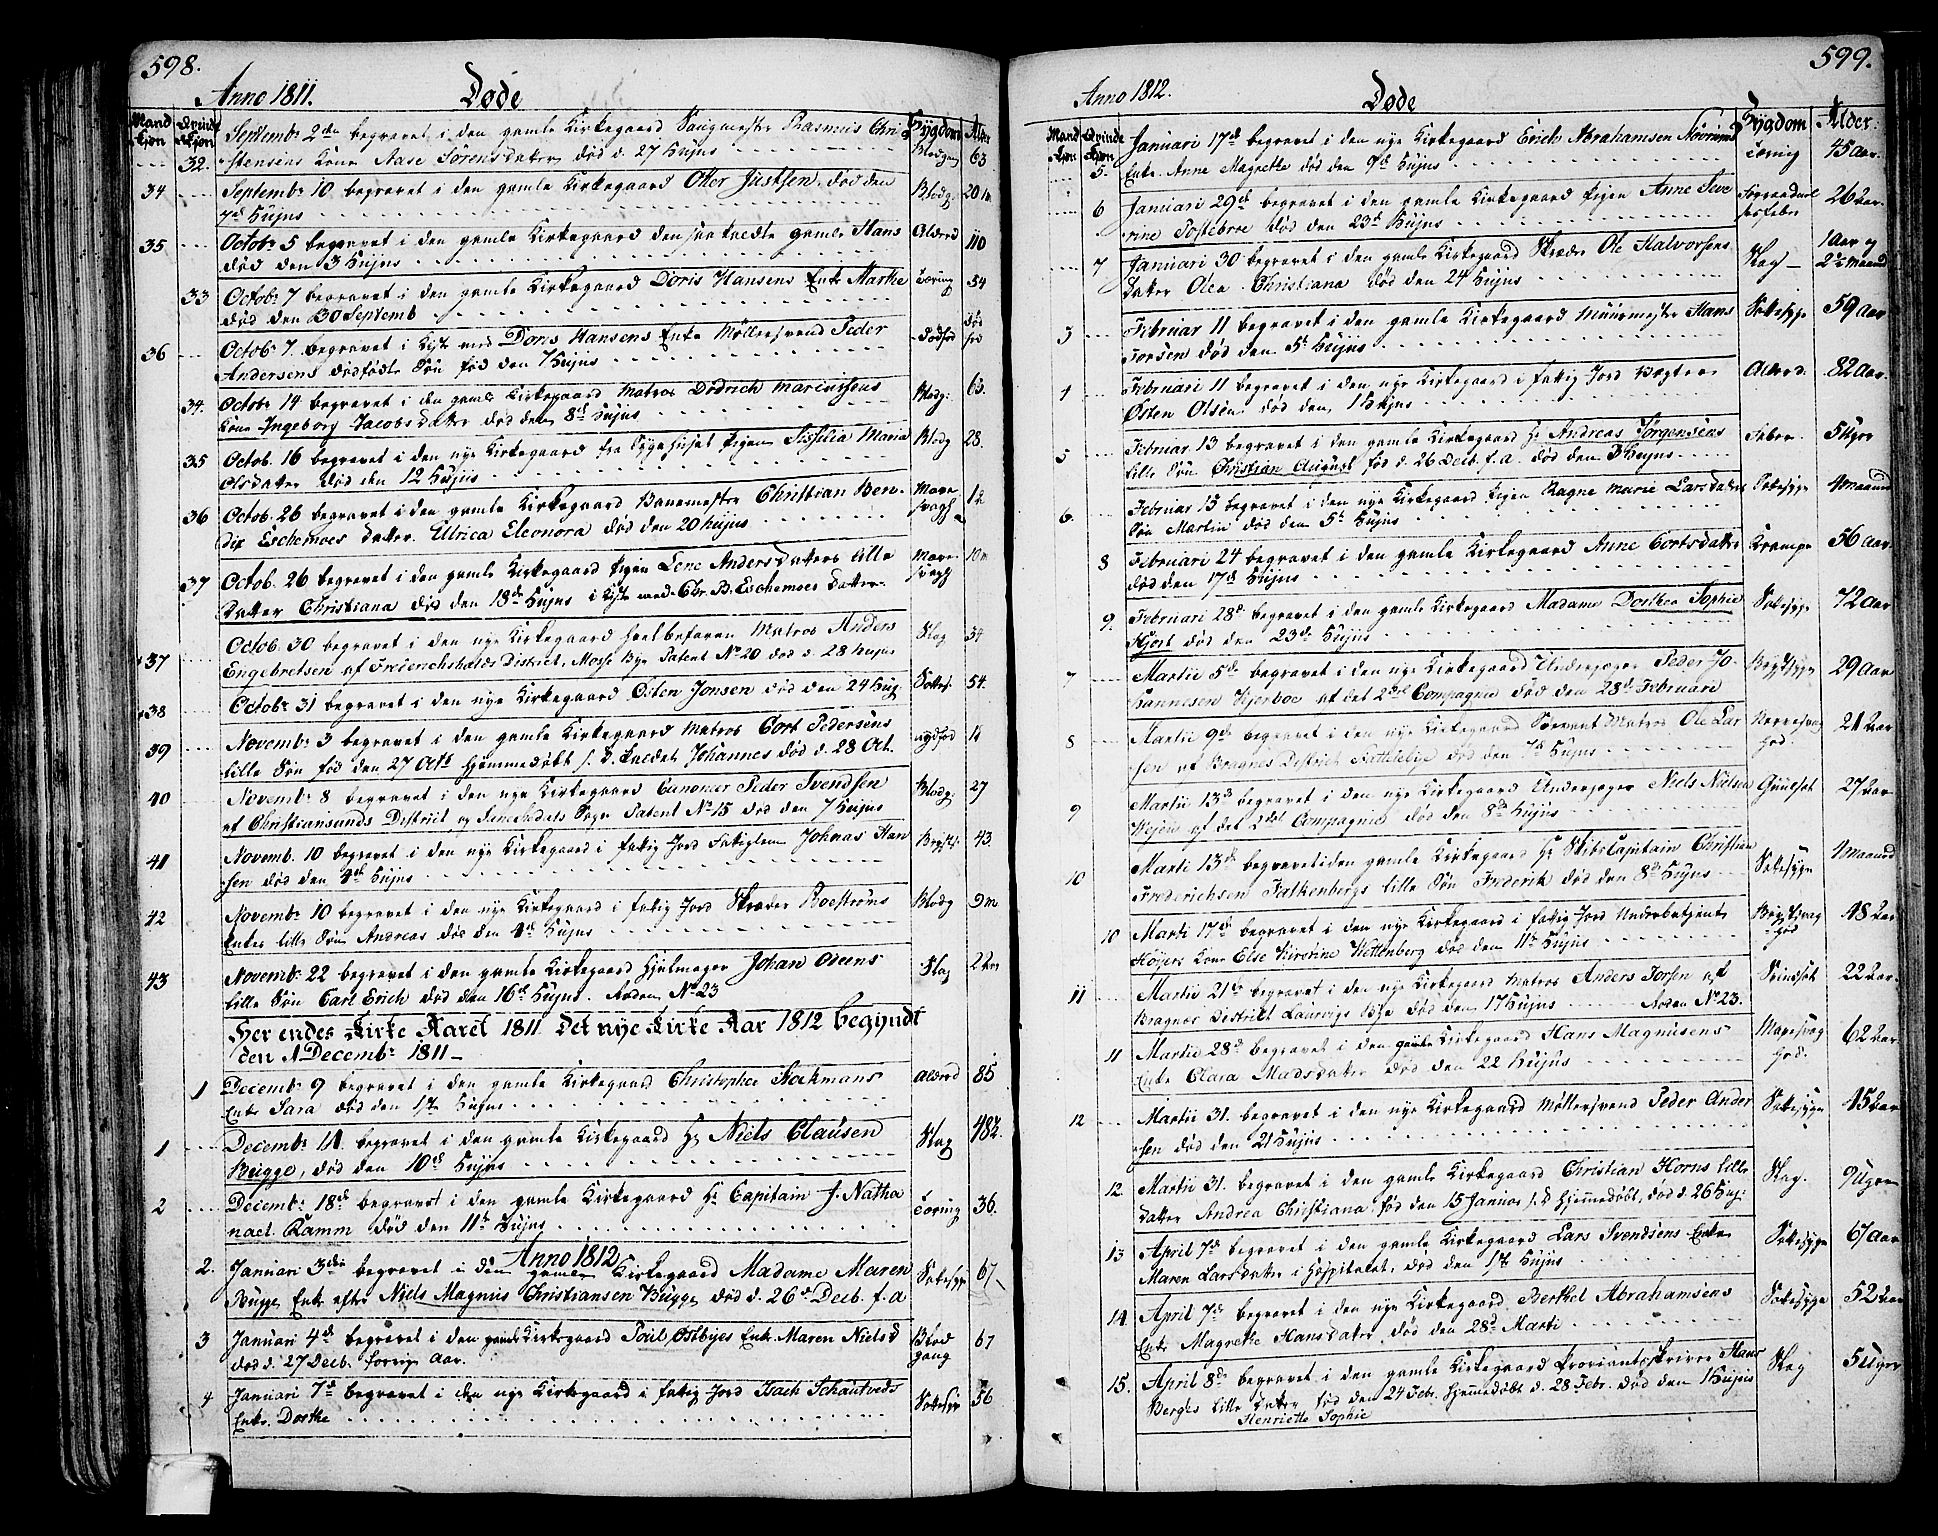 598.
Anno 1811. Døde
Mand Kjøn Qvinde Kjøn Sygdom Alder
Septembr 2den begravet i den gamle Kirkegaard Rasmus Chri-
32. stensens Kone Aase Sørensdatter død d. 27 Hujus Blodg 63
34 Septembr 10 begravet i den gamle Kirkegaard Oller Justsen, død den Blodg 20
7de Hujus
35 Octobr 5 begravet i den gamle Kirkegaard den saa kaldte gamle Hans Alderd 110
død den 3 Hujus
33 Octobr 7 begravet i den gamle Kirkegaard Doris Hansens Enke Marthe Tæring 54
død den 30 Septemb
36 Octobr 7 begravet i Kiste med Doris Hansens Enke Møllersvend Peder Dødfød
Andersens dødfødte Søn fød den 7 Hujus
34. Octobr 14 begravet i den gamle Kirkegaard Matros Dodrich Mariussens Blodg: 63.
Kone Ingeborg Jacobsdatter død den 8de Hujus
35 Octob. 16 begravet i den nye Kirkegaard fra Sygehuset Pigen Sissilia Maria Blodg 28.
Olsdatter død den 12 Hujus
36 Octob. 26 begravet i den gamle Kirkegaard Christian Ben-
dix Eschemoes Datter Ullrica Eleonora død den 20 hujus
37 Octob. 26 begravet i den gamle Kirkegaard Pigen Lene Andersdatters lille 10
Datter Christiana død den 18de Hujus i Kiste med Chr. B. Eschemoes Datter
Octob. 30 begravet i den nye Kirkegaard heelbefaren Matros Anders Slag 34
37 Engebretsen af Frederichshalds District, Mosse Bye Patent No 20 død d. 28 hujus
38 Octobr 31 begravet i den nye Kirkegaard Osten Jonsen død den 24 Huj. 54.
39 Novembr 3 begravet i den gamle Kirkegaard Matros Cort Pedersens
lille Søn fød den 27 Octr hjemmedøbt s. D. kaldet Johannes død d. 28 Oct.
40 Novembr 8 begravet i den nye Kirkegaard Canoneer Peder Svendsen Blodg: 27
af Christiansunds District og Sogn Patent No 15 død den 7 Hujus
41 Novemb. 10 begravet i den nye Kirkegaard i fattig Jord Fattiglem Johnas Han Brystsy 43.
sen død den 4de Hujus
42 Novembr 10 begravet i den nye Kirkegaard i fattig Jord Skræder Boestrøms Blodg 9m
Enkes lille Søn Andreas død den 4de Hujus
43 Novembr 22 begravet i den gamle Kirkegaard Hjulmager Johan Odeens Slag
lille Søn Carl Erich død den 16de Hujus. Roden No 23
Her endes Kirke Aaret 1811 Det nye Kirke Aar 1812 begyndt
den 1 Decembr 1811
1 Decembr 9 begravet i den gamle Kirkegaard Christopher Stockmans Alderd 85
Enke Sara død den 1te Hujus
1 Decembr 14 begravet i den gamle Kirkegaard Hr Niels Clausen Slag 48½.
Bugge, død den 10de Hujus
2 Decembr 18de begravet i den gamle Kirkegaard Hr Capitain J. Natha Tæring 36.
nael Ramm død den 11te Hujus
Anno 1812
2. Januari 3die begravet i den gamle Kirkegaard Madame Maren Sotesyge 67
Bugge Enke efter Niels Magnus Christiansen Bugge død d. 26de Decb. f. a
3 Januari 4de begravet i den gamle Kirkegaard Poul Østbyes Enke Maren Nielsd Blod 67
død d. 27 Decb. forrige Aar. gang
4 Januari 7de begravet i den nye Kirkegaard i fattig Jord Isach Schautveds Sotesyge 56
Enke Dorthe
599.
Anno 1812. Døde
Mand Kjøn Qvinde Kjøn Sygdom Alder:
Januari 17de begravet i den nye Kirkegaard Erich Abrahamsen Tæring 45 Aar.
5. Enke Anne Magrethe død den 9de Hujus
6 Januari 29de begravet i den gamle Kirkegaard Pigen Anne Seve 26 Aar.
rine Tostebroe død den 23de Hujus
7 Januari 30 begravet i den gamle Kirkegaard Skræder Ole Halvorsens Slag 1 Aar og
Datter Olea Christiana død den 24 Hujus
3 Februar 11 begravet i den gamle Kirkegaard Muurmester Hans Sotesyge 59 Aar
Torsen død den 5te Hujus
4 Februari 11 begravet i den nye Kirkegaard i fattig Jord Vægter Alderd. 82 Aar.
Østen Olsen død den 1 Hujus
5 Februar 13 begravet i den gamle Kirkegaard Hr Andreas Jørgensens Feber 5 Uger
lille Søn Christian August fød d. 26 Decb. f. a. død den 3 Hujus
6. Februar 13 begravet i den nye Kirkegaard Pigen Ragne Marie Larsdatters Sotesyge 4 Maaned
Søn Martin død den 5te Hujus
8 Februari 24 begravet i den gamle Kirkegaard Anne Cortsdatter Krampe 56 Aar.
død den 17de Hujus
9. Februari 28de begravet i den gamle Kirkegaard Madame Dorthea Sophie Sotesyge 72 Aar
Hjort død den 23de Hujus
7 Martii 5te begravet i den nye Kirkegaard Underjæger Peder Jo- Brystsyge 29 Aar
hannesen Kjerboe af det 2det Compagnie død den 28de Februari
8 Martii 9de begravet i den nye Kirkegaard Matros Ole Lar 21 Aar
sen af Bragnes District død den 7de Hujus
9 Martii 13de begravet i den nye Kirkegaard Underjæger Niels Nielsen Guulsot 27 Aar
af det 2det Compagnie død den 8de Hujus
10 Marti 13de begravet i den gamle Kirkegaard Hr Skibscapitain Christian Sotesyge Maaned
Frederichsen Falkenbergs lille Søn Frederik død den 8de Hujus
10 Marti 17de begravet i den nye Kirkegaard i fattig Jord Underbetjent 48 Aar
Høyers Kone Else Kirstine Wettenberg død den 11te Hujus
11 Martii 21de begravet i den nye Kirkegaard Matros Anders Torsen af 22 Aar
Bragnæs District Laurvigs død den 17 Hujus Roden No 23.
11 Martii 28de begravet i den gamle Kirkegaard Hans Magnusens 62 Aar
Enke Clara Madsdatter død den 22 Hujus
12 Martii 31. begravet i den nye Kirkegaard Møllersvend Peder Ander Sotesyge 45 Aar
sen død den 21 Hujus
12. Martii 31. begravet i den gamle Kirkegaard Christian Horns lille Slag. 9 Uger
Datter Andrea Christiana fød den 15 Januar s. D. hjemmedøbt, død d. 26 Huj:
13 April 7de begravet i den gamle Kirkegaard Lars Svendsens Enke Sotesyge 67 Aar
Maren Larsdatter i Hospitalet, død den 1te Hujus
14. April 7de begravet i den nye Kirkegaard Berthel Abrahamsens Sotesyge 52 Aar
Enke Magrethe Hansdatter død den 28de Marti
15. April 8de begravet i den gamle Kirkegaard Proviantskriver Hans Slag 5 Uger
Berghs lille Datter fød den 24 Febr. hjemmedøbt d. 28 Febr. død den 1 Hujus
Henriette Sophie